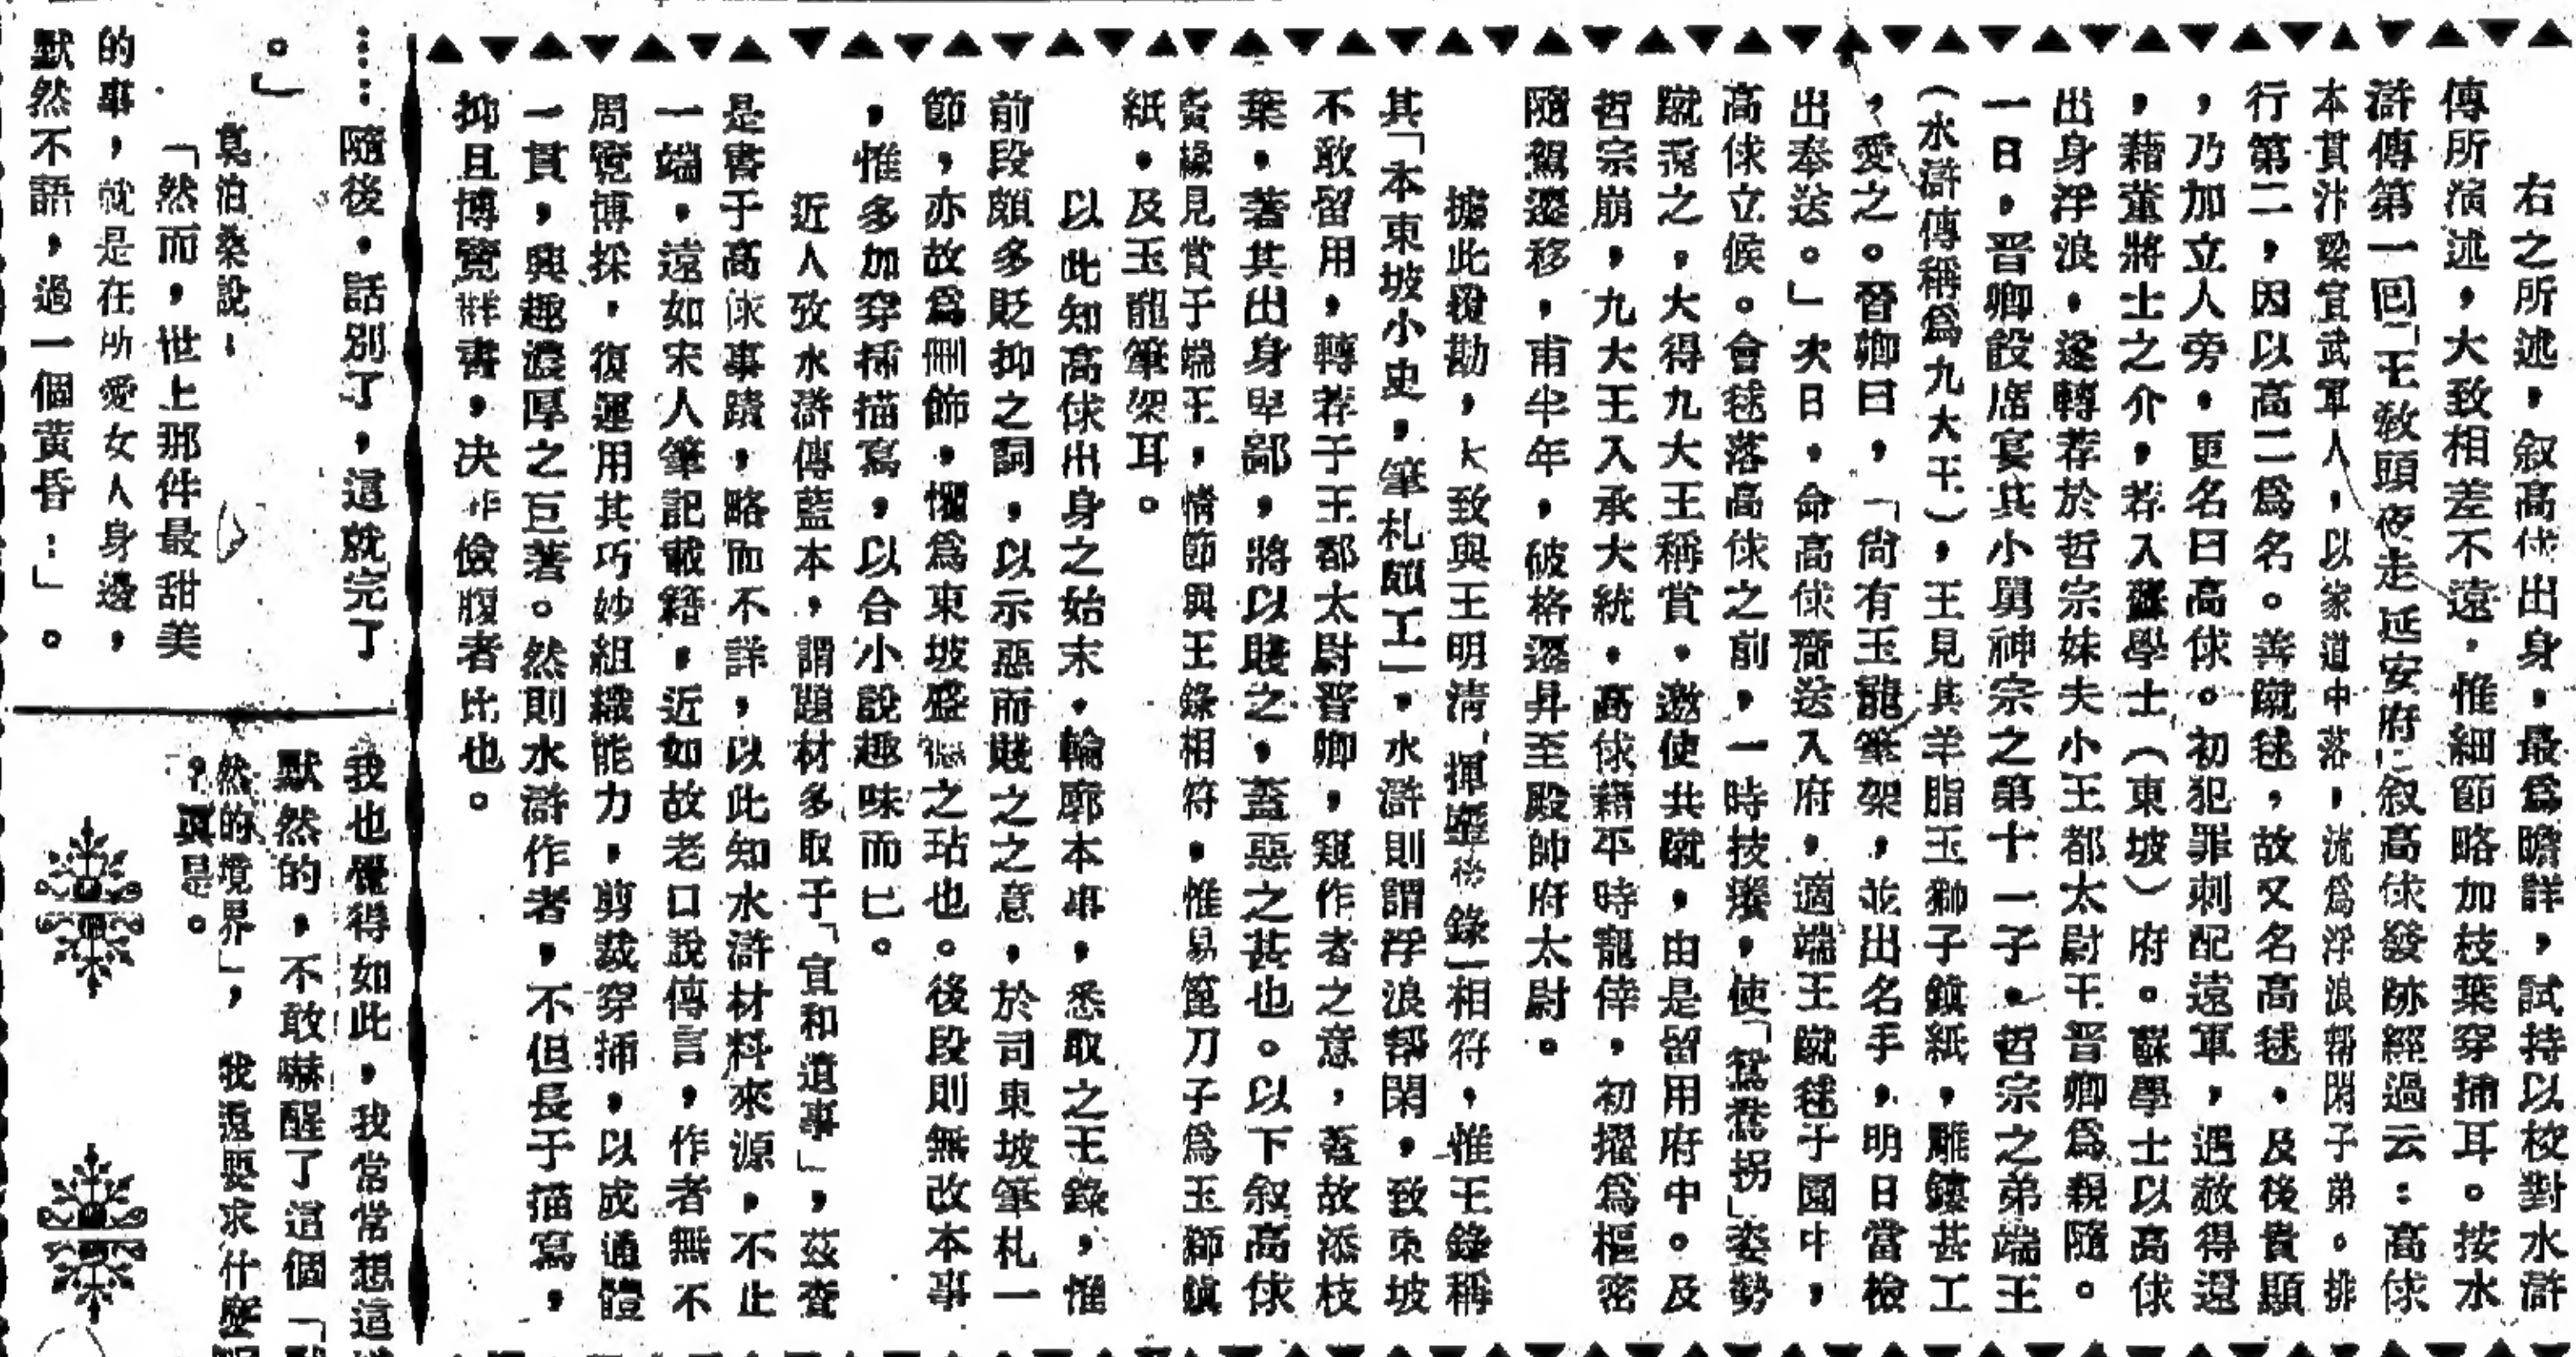 右之所述，叙高俅出身，最爲瞻詳，試持以校對水滸
傳所演述，大致相差不遠，惟細節略加枝葉穿插耳。按水
滸傳第一回「王敎頭夜走延安府」叙高俅發跡經過云：高俅
本貫汴梁宣武軍人，以家道中落，流爲浮浪幫閑子弟。排
行第二，因以高二爲名。善蹴毬，故又名高毬，及後貴顯
，乃加立人旁，更名曰高俅。初犯罪刺配遠軍，遇赦得還
，藉董將士之介，荐入蘇學士（東坡）府。蘇學士以高俅
出身浮浪，遂轉荐於哲宗妹夫小王都太尉王晋卿爲親隨。
一日，晋卿設席宴其小舅神宗之第十一子，哲宗之弟端王
（水滸傳稱爲九大王），王見其羊脂玉獅子鎮紙，雕鏤甚工
，愛之。晉卿曰，「尙有玉龍筆架，並出名手，明日當檢
出奉送。」次日，命高俅齎送入府，適端王蹴毬于園中，
高俅立候。會毬落高俅之前，一時技癢，使「鴛鴦拐」姿勢
蹴還之，大得九大王稱賞，邀使共蹴，由是留用府中。及
哲宗崩，九大王入承大統，高俅藉平時寵倖，初擢爲樞密
隨駕遷移，甫半年，破格遷昇至殿帥府太尉。
據此覆勘，大致與王明淸「揮麈 錄」相符，惟王錄稱
其「本東坡小史，筆札頗工」，水滸則謂浮浪幫閑，致東坡
不敢留用，轉荐于王都太尉晉卿，窺作者之意，蓋故添枝
葉，著其出身卑鄙，將以賤之，蓋惡之甚也。以下叙高俅
夤緣見賞于端王，情節與王錄相符，惟易篦刀子爲玉獅鎮
紙，及玉龍筆架耳。
以此知高俅出身之始末，輪廓本事，悉取之王錄，惟
前段頗多貶抑之詞，以示惡而賤之之意，於司東坡筆札一
節，亦故爲刪飾，懼爲東坡盛德之玷也。後段則無改本事
，惟多加穿揷描寫，以合小說趣味而已。
近人攷水滸傳藍本，謂題材多取于「宣和遺事」，茲査
是書于高俅事蹟，略而不詳，以此知水滸材料來源，不止
一端，遠如宋人筆記載籍，近如故老口說傳言，作者無不
周覽博採，復運用其巧妙組織能力，剪裁穿揷，以成通體
一貫，興趣濃厚之巨著。然則水滸作者，不但長于描寫，
抑且博覽群書，决非儉腹者比也。
……隨後，話別了，這就完了
。」
莫泊桑說：
「然而，世上那件最甜美
的事，就是在所愛女人身邊，
默然不語，過一個黃昏：」。
我也覺得如此，我常常想這
默然的，不敢嚇醒了這個「
然的境界」，我還要求什麼
？眞是。